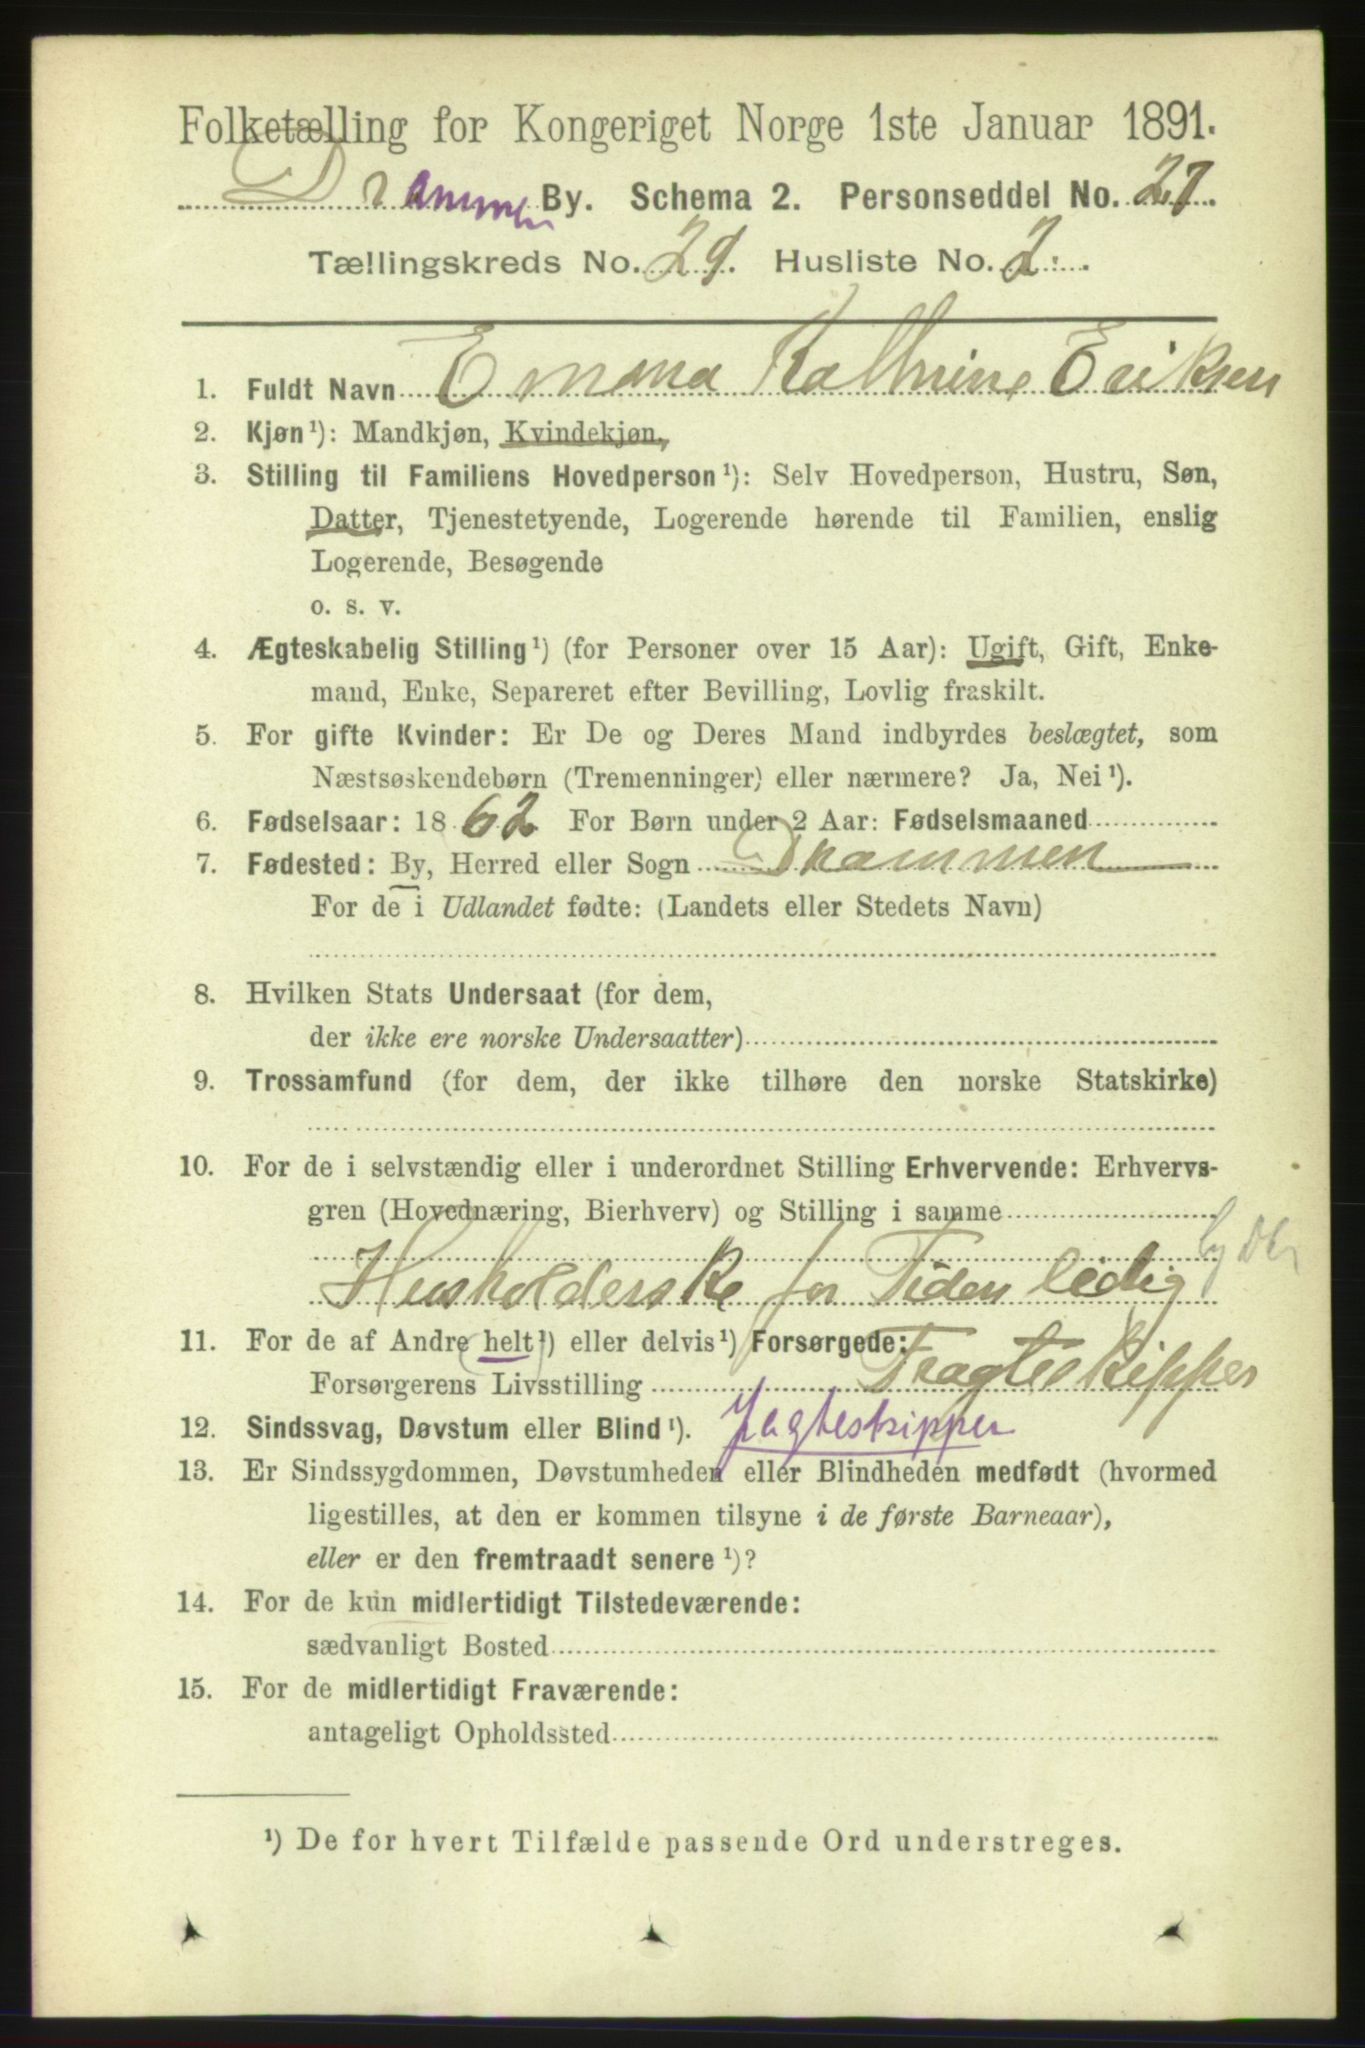 Folketælling for Kongeriget Norge 1ste Januar 1891.
Drammen By. Schema 2. Personseddel No. 27.
Tællingskreds No. 29. Husliste No. 2.
1. Fuldt Navn Emma Kathrine Eriksen
2. Kjøn¹): Mandkjøn, Kvindekjøn,
3. Stilling til Familiens Hovedperson¹): Selv Hovedperson, Hustru, Søn,
Datter, Tjenestetyende, Logerende hørende til Familien, enslig
Logerende, Besøgende
o. s. v.
4. Ægteskabelig Stilling¹) (for Personer over 15 Aar): Ugift, Gift, Enke-
mand, Enke, Separeret efter Bevilling, Lovlig fraskilt.
5. For gifte Kvinder: Er De og Deres Mand indbyrdes beslægtet, som
Næstsøskendebørn (Tremenninger) eller nærmere? Ja, Nei¹).
6. Fødselsaar: 1862 For Børn under 2 Aar: Fødselsmaaned
7. Fødested: By, Herred eller Sogn Drammen
For de i Udlandet fødte: (Landets eller Stedets Navn)
8. Hvilken Stats Undersaat (for dem,
der ikke ere norske Undersaatter)
9. Trossamfund (for dem, der ikke tilhøre den norske Statskirke)
10. For de i selvstændig eller i underordnet Stilling Erhvervende: Erhvervs-
gren (Hovednæring, Bierhverv) og Stilling i samme
Husholderske for Tiden ledig
11. For de af Andre helt¹) eller delvis¹) Forsørgede:
Forsørgerens Livsstilling Fragteskipper
12. Sindssvag, Døvstum eller Blind¹). Jagteskipper
13. Er Sindssygdommen, Døvstumheden eller Blindheden medfødt (hvormed
ligestilles, at den er kommen tilsyne i de første Barneaar),
eller er den fremtraadt senere¹)?
14. For de kun midlertidigt Tilstedeværende:
sædvanligt Bosted
15. For de midlertidigt Fraværende:
antageligt Opholdssted
¹) De for hvert Tilfælde passende Ord understreges.